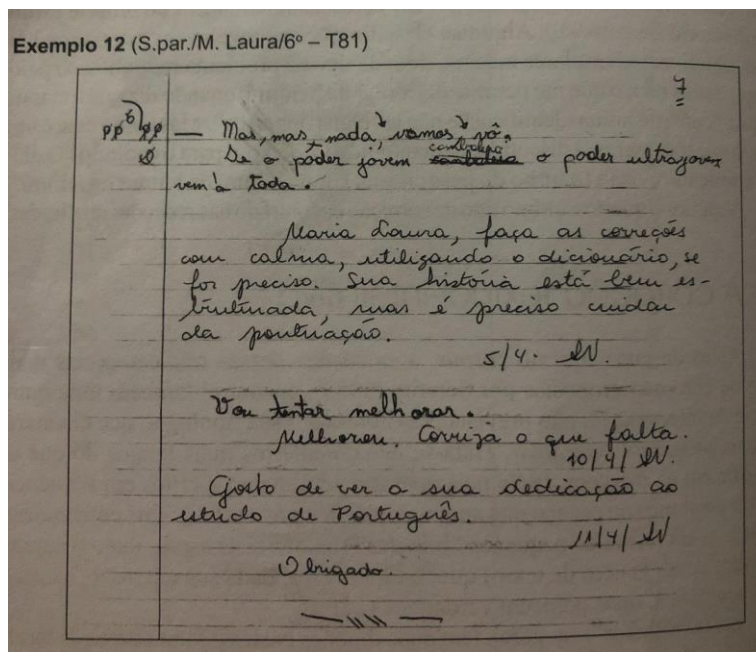 Exemplo 12 (S.par./M. Laura/6º – T81)
7
— Mas, mas, nada, vamos, vô.
De o pôder jovem o poder ultrajovem
vem à toda.
Maria Laura, faça as correções
com calma, utilizando o dicionário, se
for preciso. Sua história está bem es-
truturada, mas é preciso cuidar
da pontuação.
5/4.
Vou tentar melhorar.
Melhorou. Corrija o que falta.
10/4/
Gosto de ver a sua dedicação ao
estudo de Português.
11/4/
Obrigado.